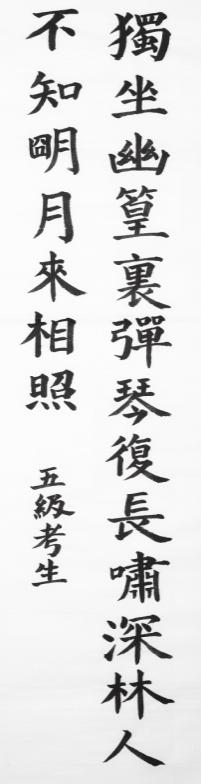 獨坐幽篁裏彈琴復長嘯深林人
不知朙月來相照
五級考生